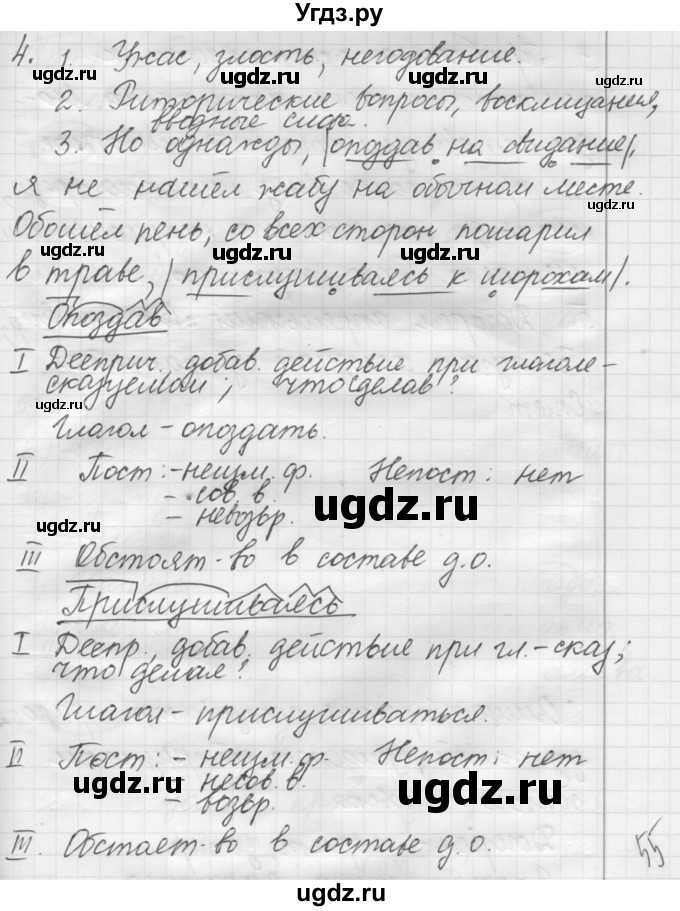 Угдз.ру
4. 1. Ужас, злость, негодование.
ugdz.ru ugdz.ru
2. Риторические вопросы, восклицания,
вводные слова.
ugdz.ru
3. Но однажды, |опоздав на свидание|,
я не нашёл жабу на обычном месте.
Обошёл пень, со всех сторон пошарил
ugdz.ru ugdz.ru
в траве, |прислушиваясь к шорохам|.
Опоздав
ugdz.ru
I Дееприч., добав. действие при глаголе-
сказуемом; что сделав?
ugdz.ru
Глагол - опоздать.
II Пост: - неизм. ф. Непост: нет
- сов. в.
- невозвр.
ugdz.ru ugdz.ru
III Обстоят-во в составе д.о.
Прислушиваясь
ugdz.ru
I Деепр., добав. действие при гл.-сказ;
что делая?
Глагол - прислушиваться.
ugdz.ru
II Пост: - неизм. ф. Непост: нет
- несов. в.
- возвр.
ugdz.ru ugdz.ru
III. Обстоят-во в составе д.о.
55
ugdz.ru ugdz.ru